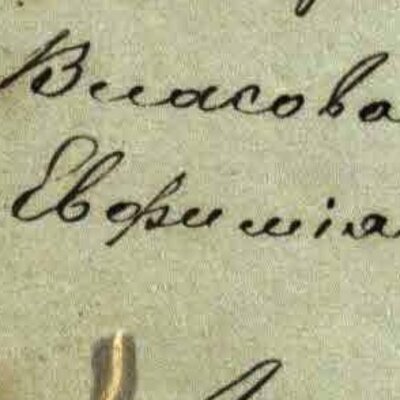 Власова
Евфимія